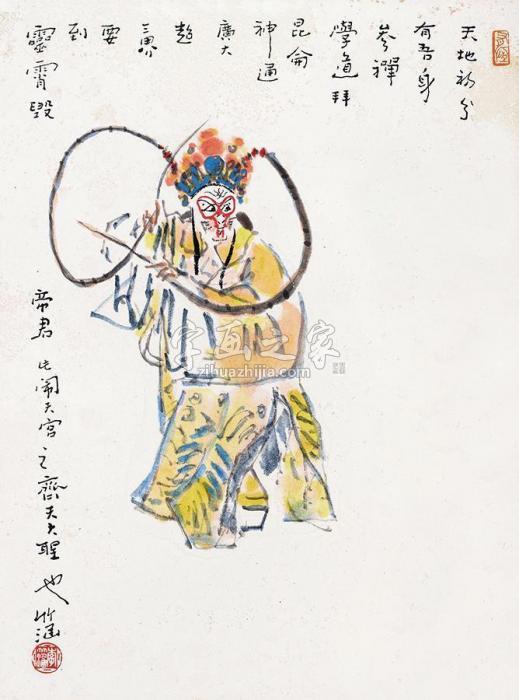 天地初分
有吾身
參禪
學道拜
昆侖
神通
廣大
超
三界
要
到
靈霄毀
帝君 此鬧天宮之齊天大聖也 竹涵
字画之家
zihuazhijia.com